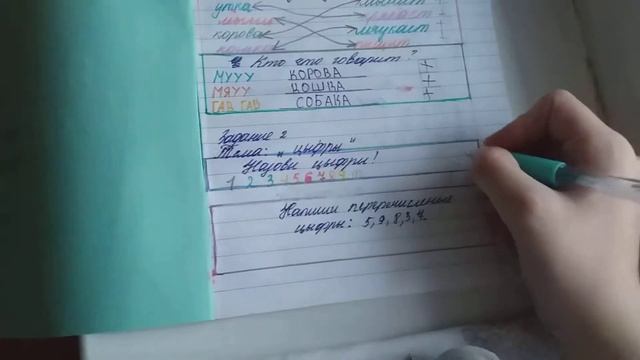 утка мычит
мышь
корова мяукает
кошка пищит
Кто что говорит?
МУУУ КОРОВА +
МЯУУ КОШКА +
ГАВ ГАВ СОБАКА +
Задание 2
Тема: „ цыфры "
Назови цыфры!
1 2 3 4 5 6 7 8 9
Напиши перечисленые
цыфры: 5, 9, 8, 3, 4